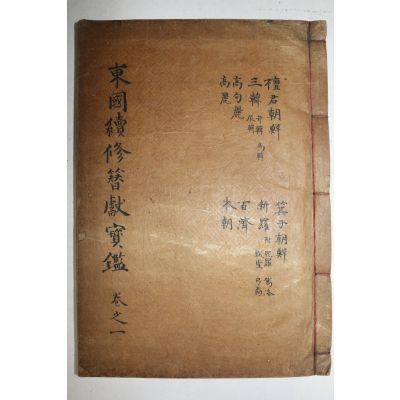 東國續修簪獻寶鑑 卷之一
檀君朝鮮
三韓 弁韓 馬韓 辰韓
高句麗
高麗
箕子朝鮮
新羅
百濟
本朝